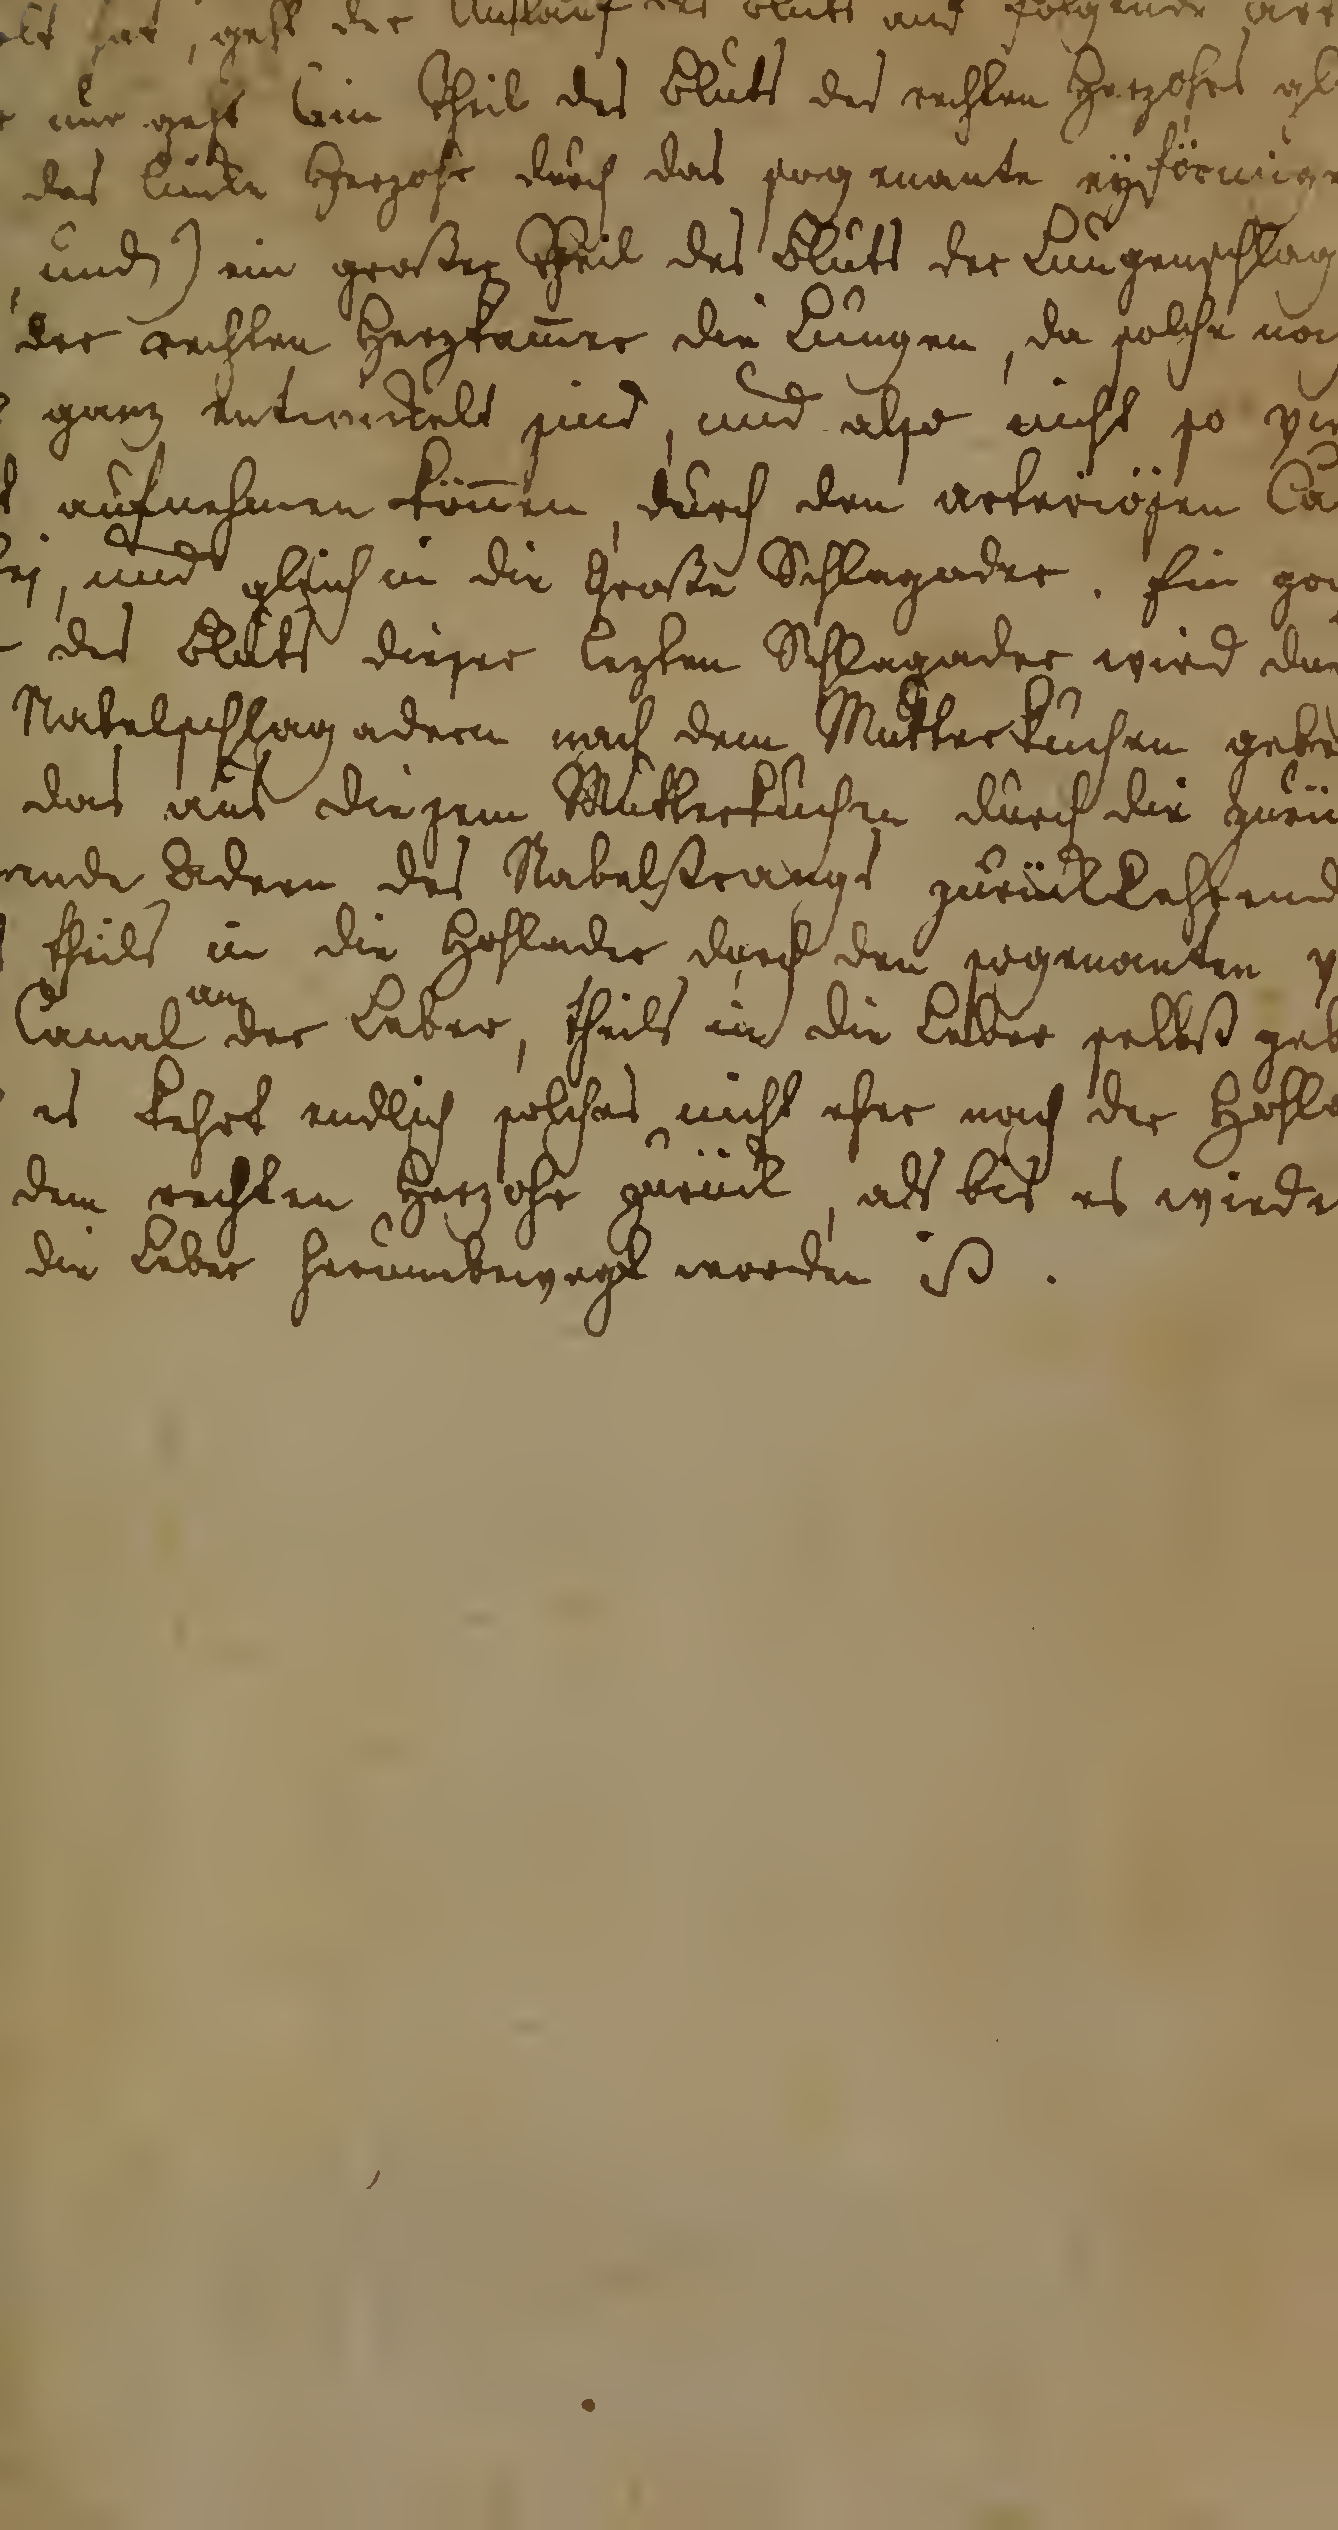 hat, geht der Umlauf des Bluts auf folgende art
nur geht ein Theil des Bluts des rechten Herzohrs
das linke Herzohr durch das sogenante eyförmige
und) ein großer Theil des Bluts der Lungenschlag
der rechten Herzkam̄er die Lungen, da solche noch
ganz entwickelt sind, und also nicht so vie
aufnehmen kön̄en, durch den arteriösen Ca
, und gleich in die Große Schlagader. Ein
des Bluts dieser lezten Schlagader wird
Nabelschlagadern nach dem Mutterkuchen
das aus diesem Mutterkuchen durch die zurü
ende Adern des Nabelstrangs zurückkehrend
theils in die Hohlader durch den sogenanten
am
Canal der Leber, theils in die Leber selbst
es kehrt endlich solches nicht eher nach der Hohla
dem rechten Herzohr zurück, als bis es wieder
die Leber herumbewegt worden ist.